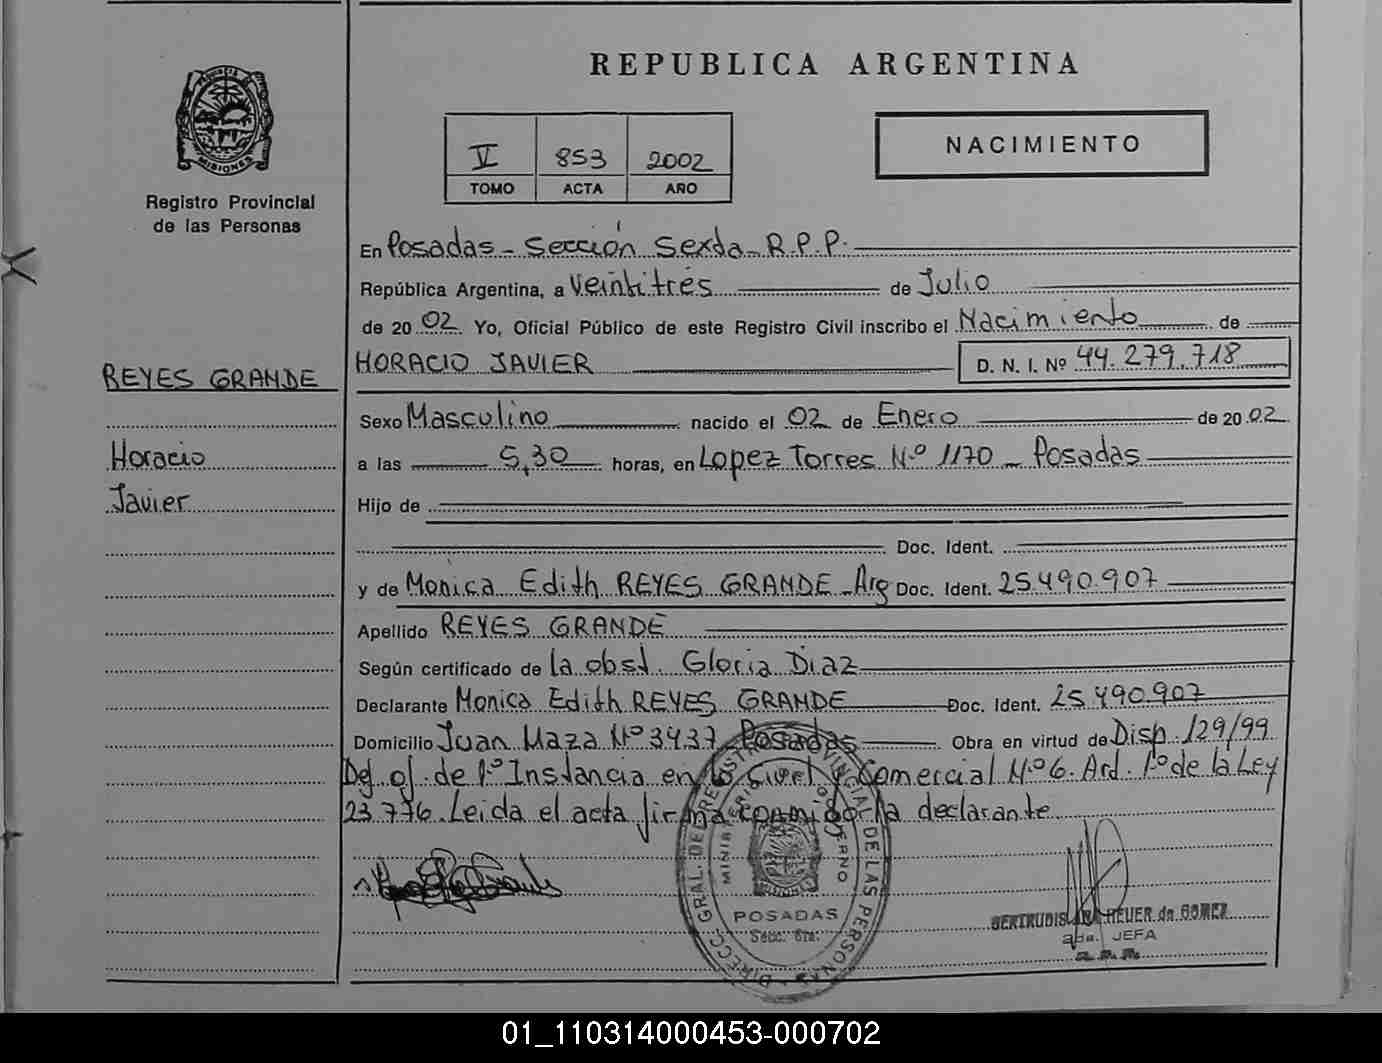 REPUBLICA ARGENTINA
MISIONES
Registro Provincial
de las Personas
V 853 2002
TOMO ACTA AÑO
NACIMIENTO
En Posadas - Sección Sexta - R.P.P.
República Argentina, a Veintitrés de Julio
de 20 02 Yo, Oficial Público de este Registro Civil inscribo el Nacimiento de
HORACIO JAVIER D. N. I. Nº 44.279.718
REYES GRANDE
Horacio
Javier
Sexo Masculino nacido el 02 de Enero de 20 02
a las 5,30 horas, en Lopez Torres Nº 1170 - Posadas
Hijo de
Doc. Ident.
y de Monica Edith REYES GRANDE - Arg Doc. Ident. 25.490.907
Apellido REYES GRANDE
Según certificado de la obst. Gloria Diaz
Declarante Monica Edith REYES GRANDE Doc. Ident. 25.490.907
Domicilio Juan Maza Nº 3437 - Posadas Obra en virtud de Disp. 129/99
Def. of. de 1º Instancia en lo Civel y Comercial Nº 6. Ard. 1º de la Ley
23.776. Leida el acta firma conmigo la declarante
DIRECC. GRAL. DEL REGISTRO PROVINCIAL DE LAS PERSONAS
MINISTERIO GOBIERNO
POSADAS
Secc. 6ta.
GERTRUDIS HEUER de GOMEZ
JEFA
01_110314000453-000702